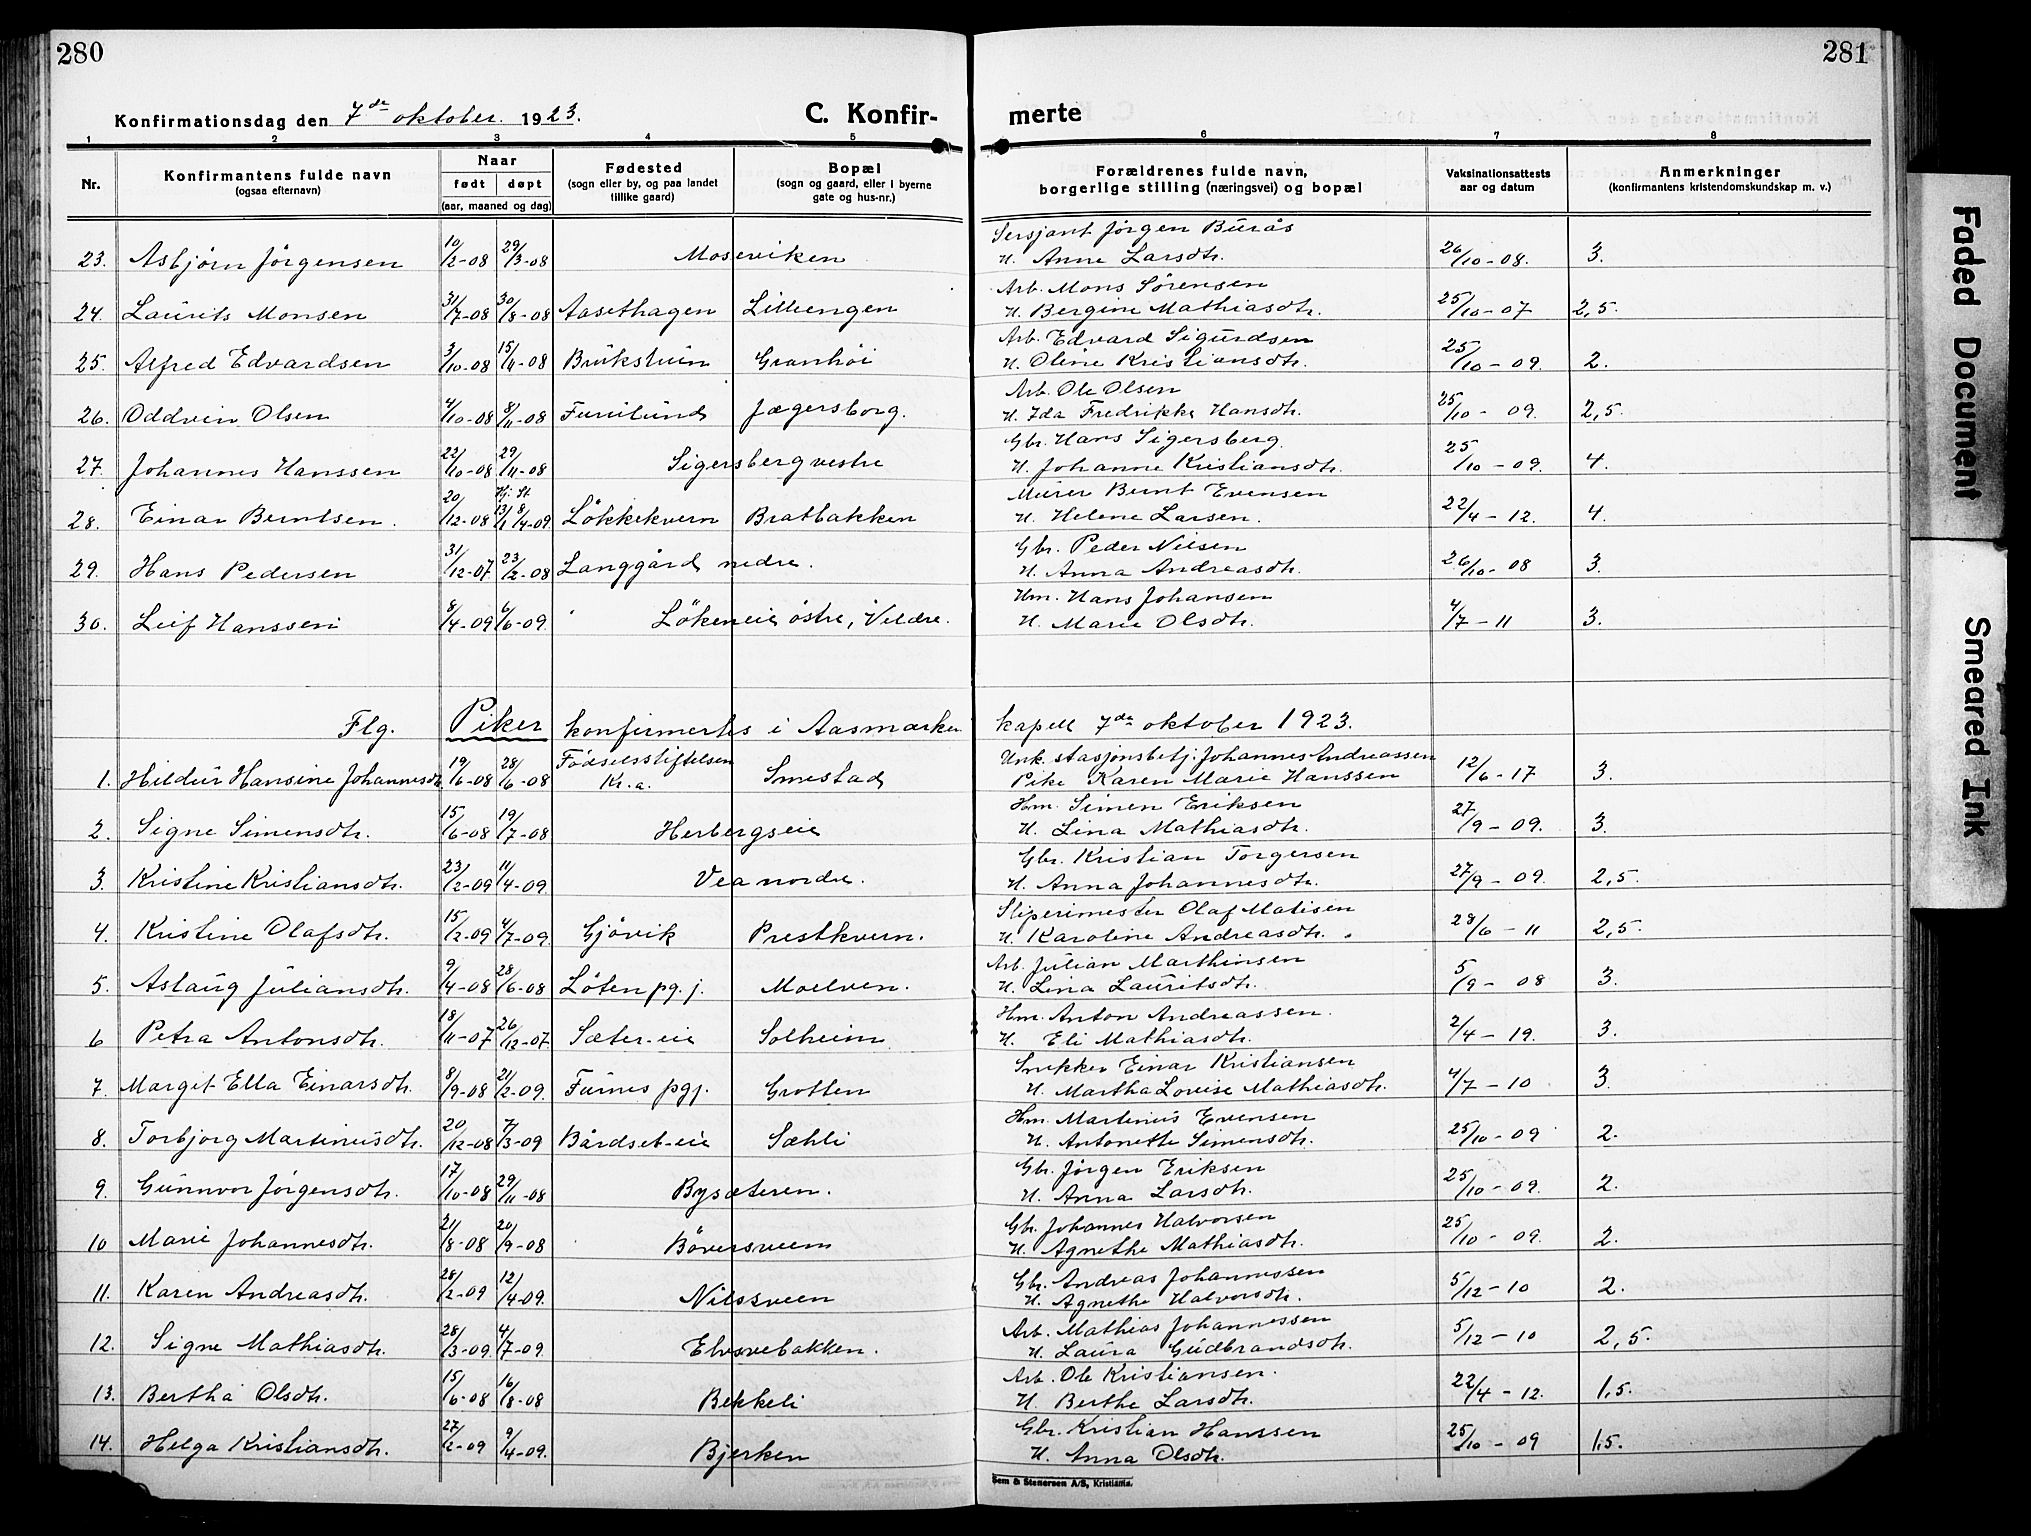 280
281
Konfirmationsdag den 7de oktober 1923.
C. Konfir-
merte
1 2 3 4 5 6 7 8
Nr.
Konfirmantens fulde navn
(ogsaa efternavn)
Naar
født døpt
(aar, maaned og dag)
Fødested
(sogn eller by, og paa landet
tillike gaard)
Bopæl
(sogn og gaard, eller i byerne
gate og hus-nr.)
Forældrenes fulde navn,
borgerlige stilling (næringsvei) og bopæl
Vaksinationsattests
aar og datum
Anmerkninger
(konfirmantens kristendomskundskap m. v.)
Sersjant Jørgen Burås
23. Asbjørn Jørgensen 10/2-08 29/3-08 Moseviken H. Anne Larsdtr. 26/10-08. 3.
Arb. Mons Sørensen
24. Laurits Monsen 31/7-08 30/8-08 Aasethagen Lilleengen H. Bergine Mathiasdtr. 25/10-07 2,5.
Arb. Edvard Sigurdsen
25. Alfred Edvardsen 3/10-08 15/11-08 Brukstuen Granhøi H. Oline Kristiansdtr. 25/10-09. 2.
Arb. Ole Olsen
26. Oddvin Olsen 4/10-08 8/11-08 Furulund Jægersborg. H. Ida Fredrikke Hansdtr. 25/10-09. 2,5.
Gbr. Hans Sigersberg.
27. Johannes Hanssen 22/10-08 29/11-08 Sigersberg vestre H. Johanne Kristiansdtr. 25/10-09. 4.
Hj. St. Murer Bernt Evensen
28. Einar Berntsen. 20/12-08 13/1 8/4-09. Løkkekvern Bratbakken H. Helene Larsen. 22/4-12. 4.
Gbr. Peder Nilsen
29. Hans Pedersen 31/12-07 23/2-08 Langgård nedre. H. Anna Andreasdtr. 26/10-08 3.
Hm. Hans Johansen
30. Leif Hanssen 8/4-09 6/6-09. Løkeneie østre, Veldre. H. Marie Olsdtr. 4/7-11 3.
Flg. Piker konfirmertes i Aasmarken kapell 7de oktober 1923.
Fødselsstiftelsen Unk. stasjonsbetj. Johannes Andreassen
1. Hildur Hansine Johannesdtr. 19/6-08 28/6-08 Kr.a. Smestad Pike Karen Marie Hanssen 12/6-17 3.
Hm. Simen Eriksen
2. Signe Simensdtr. 15/6-08 19/7-08 Herbergseie H. Lina Mathiasdtr. 27/9-09. 3.
Gbr. Kristian Torgersen
3. Kristine Kristiansdtr. 23/2-09 11/4-09. Vea nordre. H. Anna Johannesdtr. 27/9-09. 2,5.
Sliperimester Olaf Matisen
4. Kristine Olafsdtr. 15/2-09 4/7-09. Gjøvik Prestkvern. H. Karoline Andreasdtr. 28/6-11 2,5.
Arb. Julian Marthinsen
5. Aslaug Juliansdtr. 9/4-08 28/6-08 Løten pgj. Moelven. H. Lina Lauritsdtr. 5/9-08 3.
Hm. Anton Andreassen.
6 Petra Antonsdtr. 18/11-07 26/12-07. Sæter-eie Solheim H. Eli Mathiasdtr. 2/4-19. 3.
Snekker Einar Kristiansen
7. Margit Ella Einarsdtr. 8/9-08 21/2-09. Furnes pgj. Grotten H. Martha Lovise Mathiasdtr. 4/7-10 3.
Hm. Martinus Evensen
8. Torbjørg Martinusdtr. 20/12-08 7/3-09 Bårdset-eie Sæhli H. Antonette Simensdtr. 25/10-09 2.
Gbr. Jørgen Eriksen
9. Gunnvor Jørgensdtr. 17/10-08 29/11-08 Bysæteren. H. Anna Larsdtr. 25/10-09. 2.
Gbr. Johannes Halvorsen
10 Marie Johannesdtr. 21/8-08 20/9-08 Bøversveen H. Agnethe Mathiasdtr. 25/10-09. 2.
Gbr. Andreas Johannessen
11. Karen Andreasdtr. 28/2-09 12/4-09. Nilssveen H. Agnethe Halvorsdtr. 5/12-10 2.
Arb. Mathias Johannessen
12. Signe Mathiasdtr. 28/3-09. 4/7-09. Elvsvebakken. H. Laura Gudbrandsdtr. 5/12-10 2,5.
Arb. Ole Kristiansen.
13. Bertha Olsdtr. 15/6-08 16/8-08 Bekkeli H. Berthe Larsdtr. 22/4-12. 1,5.
Gbr. Kristian Hanssen
14. Helga Kristiansdtr. 27/2-09 9/4-09. Bjerken H. Anna Olsdtr. 25/10-09 1,5.
Sem & Stenersen A/S, Kristiania.
Faded Document
Smeared Ink